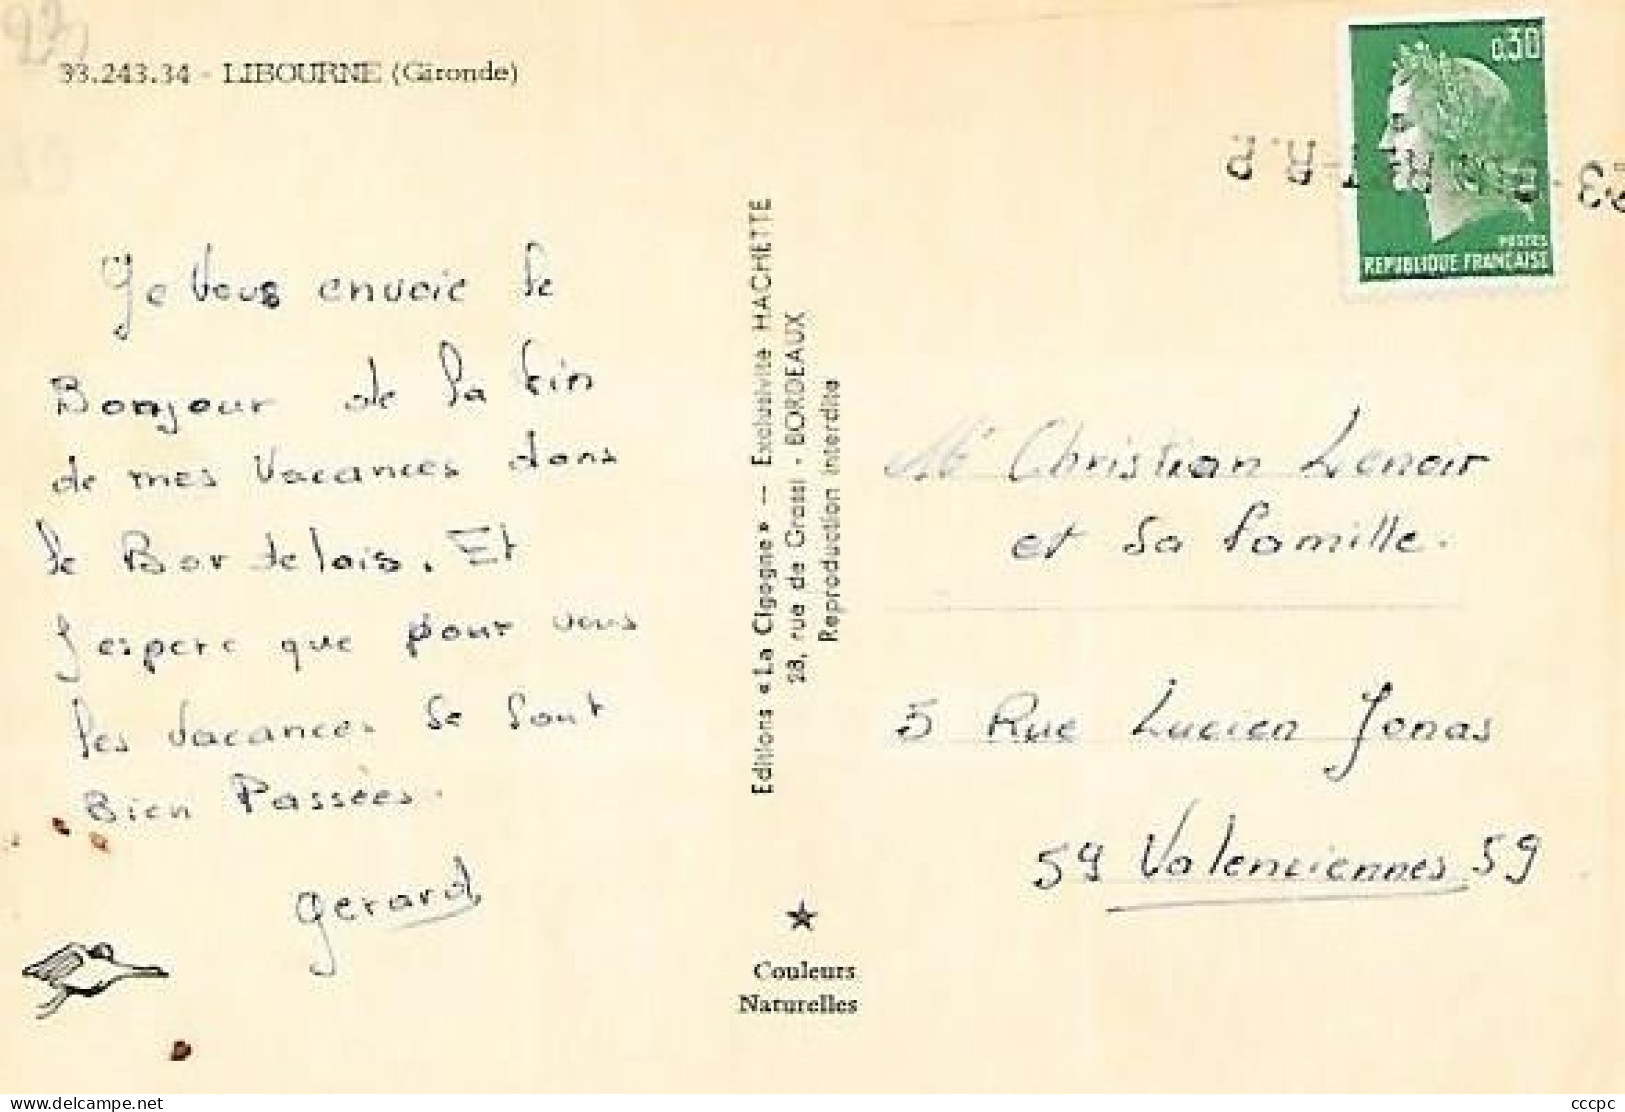 33.243.34 - LIBOURNE (Gironde)
Je Vous envoie le
Bonjour de la fin
de mes Vacances dans
le Bordelais. Et
J'espere que pour vous
les vacances se sont
Bien Passées.
Gerard
Editions « La Cigogne » — Exclusivité HACHETTE
28, rue de Grassi - BORDEAUX
Reproduction interdite
Couleurs
Naturelles
0,30
POSTES
REPUBLIQUE FRANCAISE
Mr Christian Lenoir
et Sa famille.
5 Rue Lucien Jonas
59 Valenciennes 59
cccpc